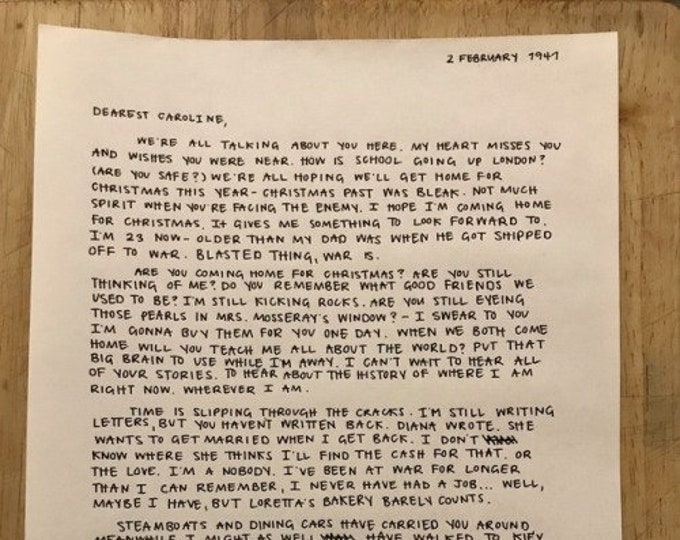 2 FEBRUARY 1941
DEAREST CAROLINE,
WE'RE ALL TALKING ABOUT YOU HERE. MY HEART MISSES YOU
AND WISHES YOU WERE NEAR. HOW IS SCHOOL GOING UP LONDON?
(ARE YOU SAFE?) WE'RE ALL HOPING WE'LL GET HOME FOR
CHRISTMAS THIS YEAR - CHRISTMAS PAST WAS BLEAK. NOT MUCH
SPIRIT WHEN YOU'RE FACING THE ENEMY. I HOPE I'M COMING HOME
FOR CHRISTMAS. IT GIVES ME SOMETHING TO LOOK FORWARD TO.
I'M 23 NOW - OLDER THAN MY DAD WAS WHEN HE GOT SHIPPED
OFF TO WAR. BLASTED THING, WAR IS.
ARE YOU COMING HOME FOR CHRISTMAS? ARE YOU STILL
THINKING OF ME? DO YOU REMEMBER WHAT GOOD FRIENDS WE
USED TO BE? I'M STILL KICKING ROCKS. ARE YOU STILL EYEING
THOSE PEARLS IN MRS. MOSSERAY'S WINDOW? - I SWEAR TO YOU
I'M GONNA BUY THEM FOR YOU ONE DAY. WHEN WE BOTH COME
HOME WILL YOU TEACH ME ALL ABOUT THE WORLD? PUT THAT
BIG BRAIN TO USE WHILE I'M AWAY. I CAN'T WAIT TO HEAR ALL
OF YOUR STORIES. TO HEAR ABOUT THE HISTORY OF WHERE I AM
RIGHT NOW. WHEREVER I AM.
TIME IS SLIPPING THROUGH THE CRACKS. I'M STILL WRITING
LETTERS, BUT YOU HAVEN'T WRITTEN BACK. DIANA WROTE. SHE
WANTS TO GET MARRIED WHEN I GET BACK. I DON'T
KNOW WHERE SHE THINKS I'LL FIND THE CASH FOR THAT. OR
THE LOVE. I'M A NOBODY. I'VE BEEN AT WAR FOR LONGER
THAN I CAN REMEMBER, I NEVER HAVE HAD A JOB... WELL,
MAYBE I HAVE, BUT LORETTA'S BAKERY BARELY COUNTS.
STEAMBOATS AND DINING CARS HAVE CARRIED YOU AROUND
MEANWHILE I MIGHT AS WELL HAVE WALKED TO KIEV